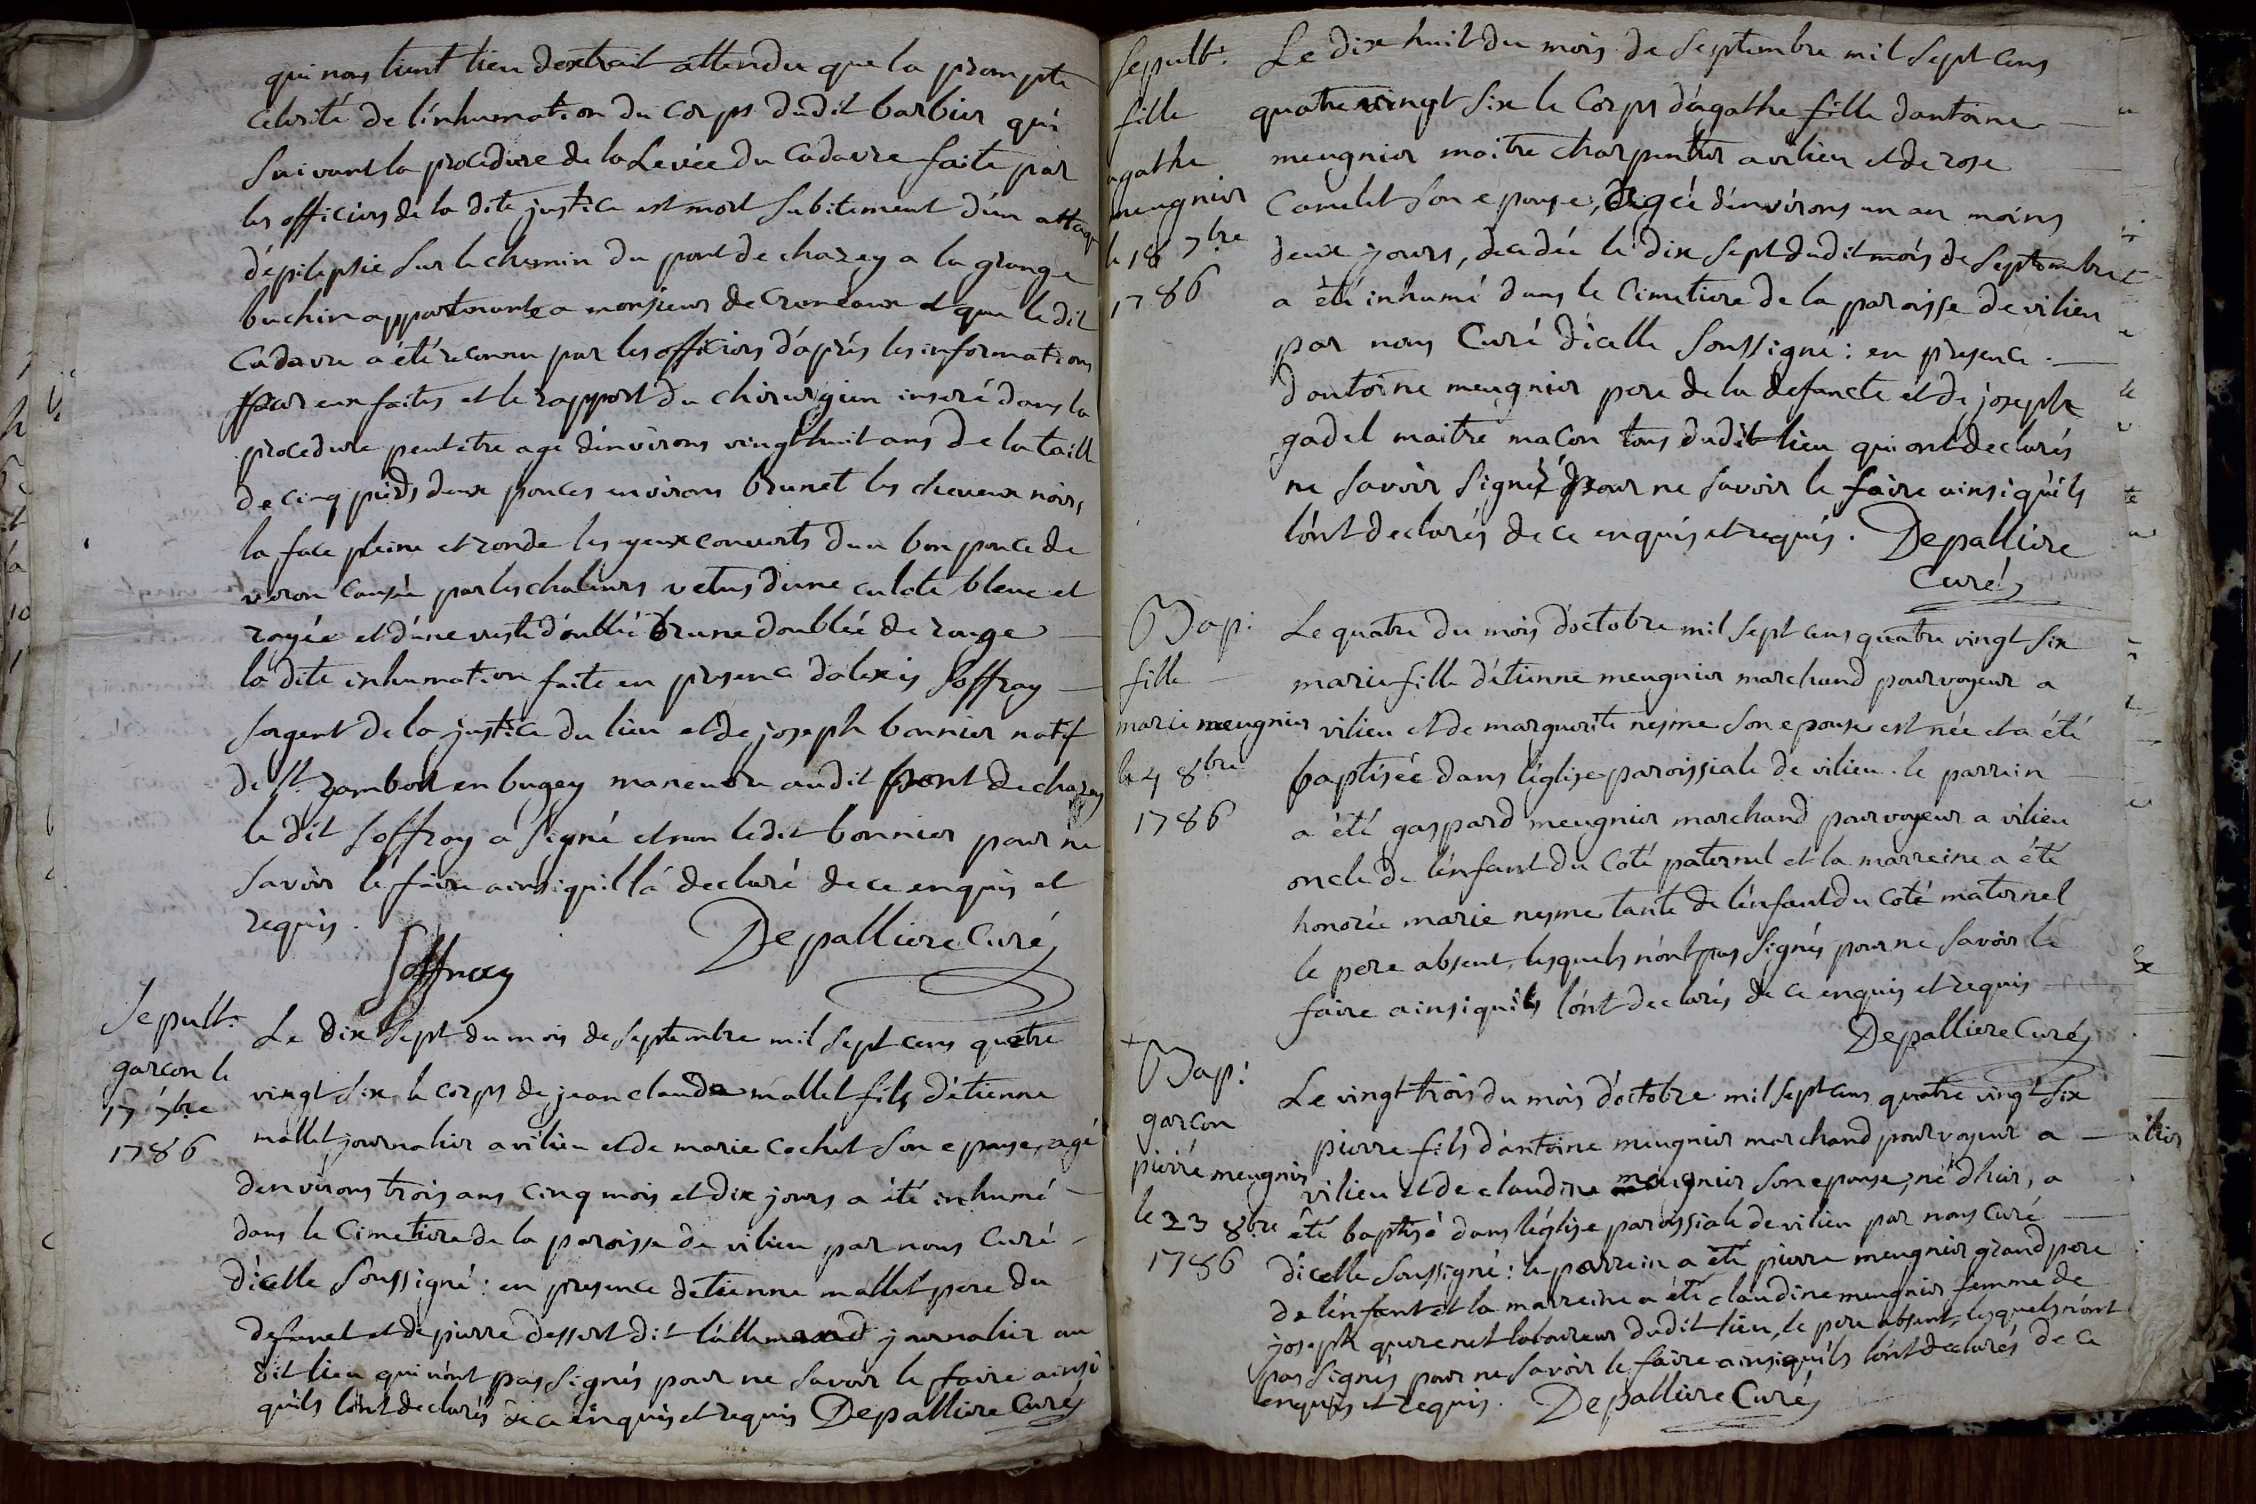 qui nous tient lieu dextrait attendu que la prompte
celerité de l'inhumation du corps dudit barbier qui
suivant la procedure de la Levée du cadavre faite par
les officiers de la dite justice est mort subitement d'un attaqu
d'épilepsie sur le chemin du pont de chazey a la grange
buchin appartenante a monsieur de cremeaux et que le dit
Cadavre a été reconnu par les officiers d'aprés les informations
par eux faites et le rapport du chirurgien inseré dans la
procedure peut etre agé d'environs vingt huit ans de la taille
de cinq pieds deux pouces environs brunet les cheveux noirs
la face pleine et ronde les yeux couverts d'un bon pouce de
veron causée par les chaleurs vetus d'une culote bleue et
rayée et d'une veste d'oublié brune doublée de rouge
la dite inhumation faite en presence d'alexis soffray
sergent de la justice du lieu et de joseph bonnier natif
de st. rambert en bugey maneuvre audit pont de chazey
le dit soffray a signé et non ledit bonnier pour ne
savoir le faire ainsi quil l'a declaré de ce enquis et
requis.
Soffray Depalliere Curé
Sepult:
garcon le
17 7bre
1786
Le dix sept du mois de septembre mil sept cens quatre
vingt six le corps de jean claude mallet fils d'étienne
mallet journalier a vilieu et de marie cochet son epouse, agé
denvirons trois ans cinq mois et dix jours a été inhumé
dans le Cimetiere de la paroisse de vilieu par nous Curé
d'icelle soussigné: en presence detienne mallet pere du
defunct et de pierre dessert dit l'allemand journalier au
dit lieu qui n'ont pas signés pour ne savoir le faire ainsi
quils l'ont declarés de ce enquis et requis Depalliere Curé
Sepult:
fille
agathe
meugnier
le 18 7bre
1786
Le dix huit du mois de septembre mil sept cens
quatre vingt six le Corps d'agathe fille dantoine
meugnier maitre charpentier a vilieu et de rose
Camelet son epouse, agée d'environs un an moins
deux jours, decedée le dix sept dudit mois de septembre
a été inhumé dans le Cimetiere de la paroisse de vilieu
par nous Curé d'icelle soussigné: en presence
d'antoine meugnier pere de la defuncte et de joseph
gadel maitre maçon tous dudit lieu qui ont declarés
ne savoir signer pour ne savoir le faire ainsi quils
l'ont declarés de ce enquis et requis. Depalliere
Curé
Bap:
fille
marie meugnier
le 4 8bre
1786
Le quatre du mois d'octobre mil sept cens quatre vingt six
marie fille d'étienne meugnier marchand pourvoyeur a
vilieu et de marguerite nesme son epouse est née et a été
baptisée dans l'église paroissiale de vilieu. le parrein
a été gaspard meugnier marchand pourvoyeur a vilieu
oncle de l'enfant du coté paternel et la marreine a été
honorée marie nesme tante de l'enfant du coté maternel
le pere absent, lesquels n'ont pas signés pour ne savoir le
faire ainsi quils l'ont declarés de ce enquis et requis
Depalliere Curé
Bap:
garcon
pierre meugnier
le 23 8bre
1786
Le vingt trois du mois d'octobre mil sept cens quatre vingt six
pierre fils d'antoine meugnier marchand pourvoyeur a
vilieu et de claudine meugnier son epouse, né d'hier, a
été baptisé dans l'église paroissiale de vilieu par nous Curé
d'icelle soussigné: le parrein a été pierre meugnier grand pere
de l'enfant et la marreine a été claudine meugnier femme de
joseph laboureur dudit lieu, le pere absent, lesquels n'ont
pas signés pour ne savoir le faire ainsi quils l'ont declarés de ce
enquis et requis. Depalliere Curé